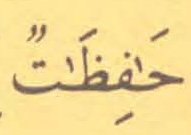 حَٰفِظَٰتٌ